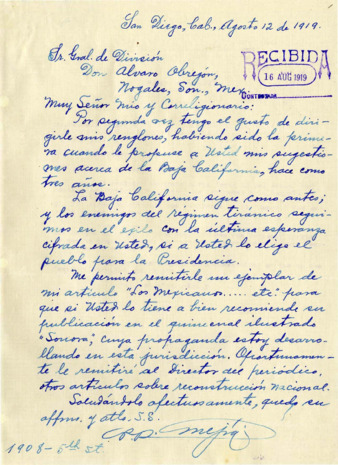 San Diego, Cal., Agosto 12 de 1919.
Sr. Gral. de División
Don Alvaro Obregón,
Nogales, Son., Mex.
RECIBIDA
16 AUG 1919
CONTESTADA
Muy Señor Mío y Correligionario:
Por segunda vez tengo el gusto de diri-
girle mis renglones, habiendo sido la prime-
ra cuando le propuse a Usted mis sugestio-
nes acerca de la Baja California, hace como
tres años.
La Baja California sigue como antes;
y los enemigos del regimen tiránico segui-
mos en el exilo con la última esperanza
cifrada en Usted, si a Usted lo elige el
pueblo para la Presidencia.
Me permito remitirle un ejemplar de
mi artículo "Los Mexicanos..... etc." para
que si Usted lo tiene a bien recomiende su
publicación en el quincenal ilustrado
"Sonora", cuya propaganda estoy desarro-
llando en esta jurisdicción. Oportunamen-
te le remitiré al Director del periódico,
otros artículos sobre reconstrucción nacional.
Saludándolo afectuosamente, quedo su
affmo. y atto. S.S.
Mejía
1908-5th St.